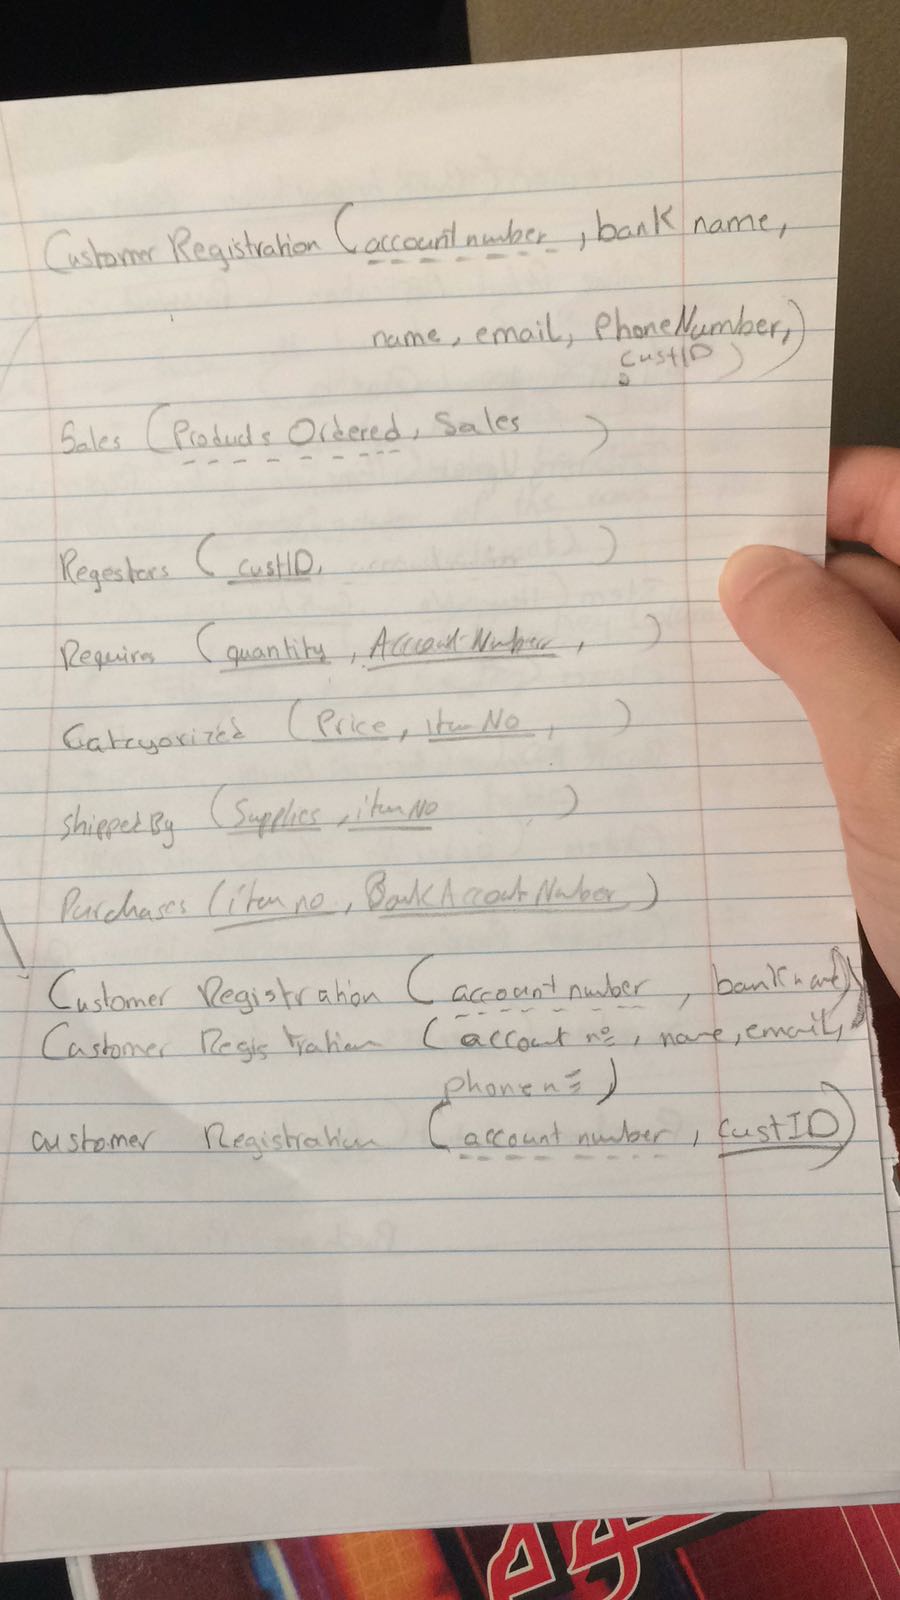 Customer Registration (account number, bank name,
name, email, PhoneNumber,)
custID)
Sales (Products Ordered, Sales )
Regestors (custID, )
Requires (quantity, Account Number, )
Categorized (Price, itemNo, )
Shipped By (Supplies, itemNo )
Purchases (item no, Bank Account Number)
Customer Registration (account number, bank name)
Customer Registration (account nº, name, email,
phone nº)
customer Registration (account number, custID)